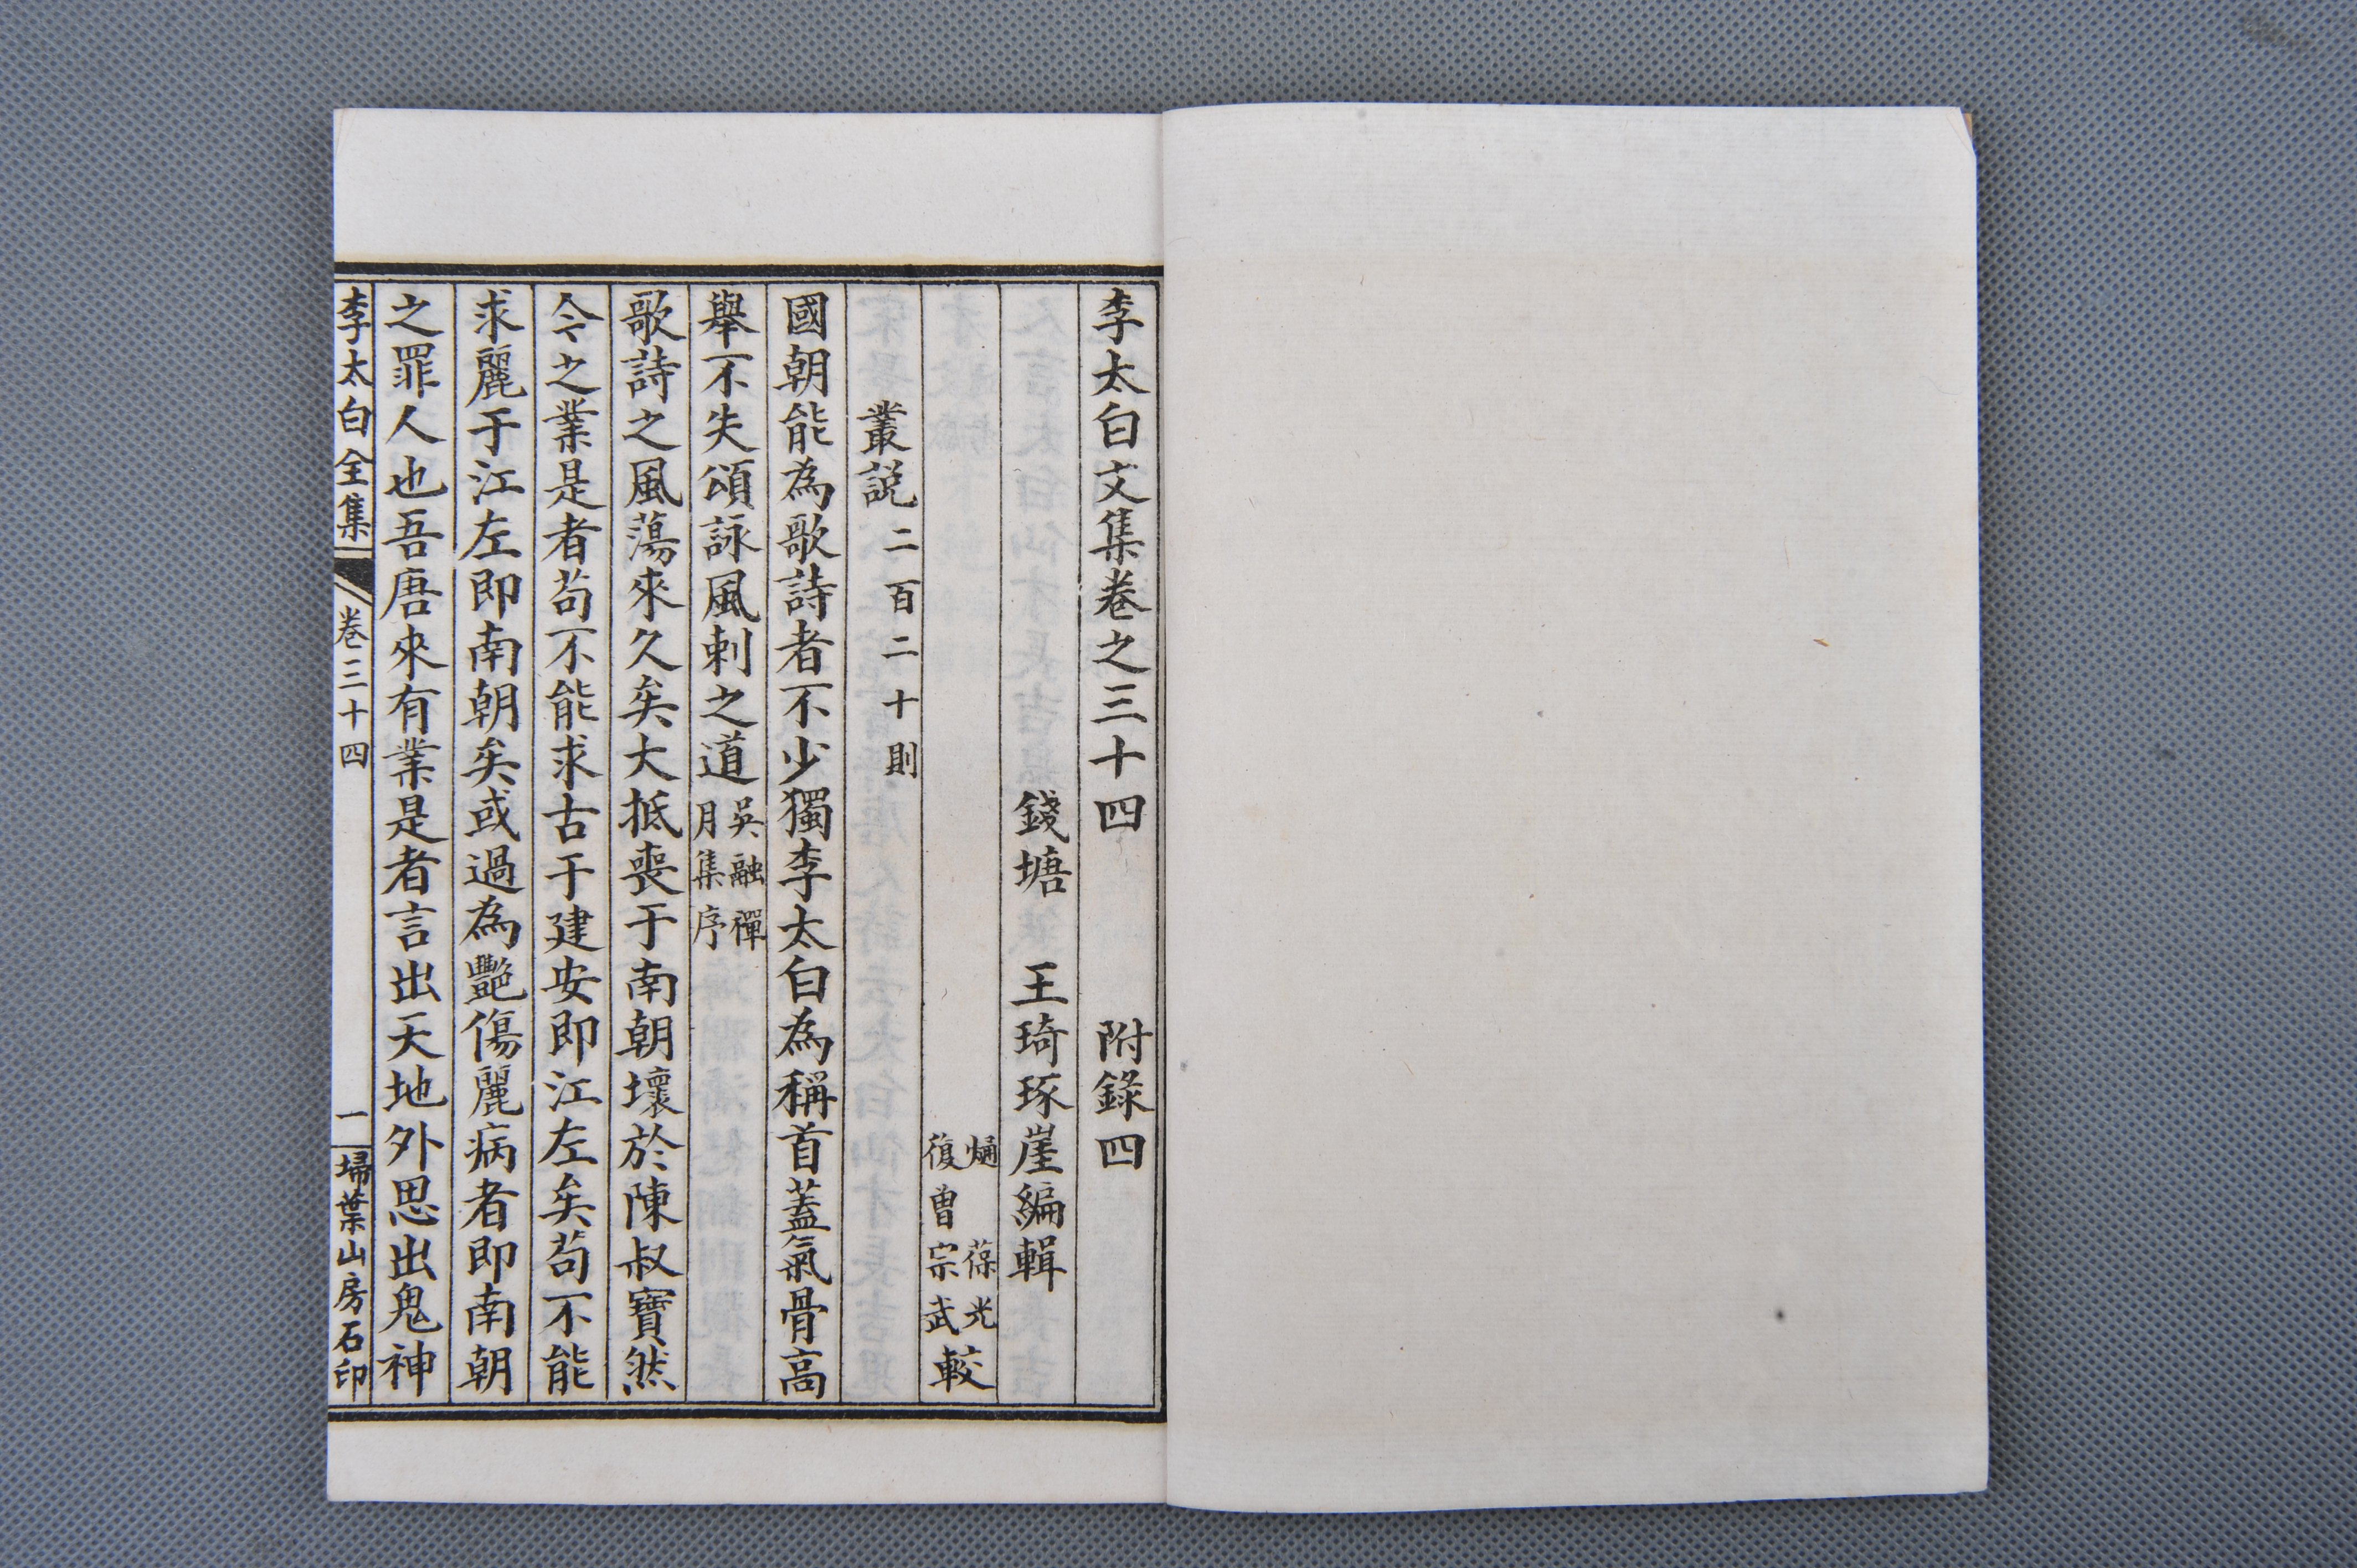 李太白文集卷之三十四　附錄四
錢塘　王琦琢崖編輯
熥　葆光
復曾宗武
較
叢説二百二十則
國朝能為歌詩者不少獨李太白為稱首蓋氣骨高
舉不失頌詠風刺之道吳融禪月集序
歌詩之風蕩來久矣大抵喪于南朝壞於陳叔寶然
今之業是者苟不能求古于建安即江左矣苟不能
求麗于江左即南朝矣或過為艷傷麗病者即南朝
之罪人也吾唐來有業是者言出天地外思出鬼神
李太白全集　卷三十四　一　埽葉山房石印